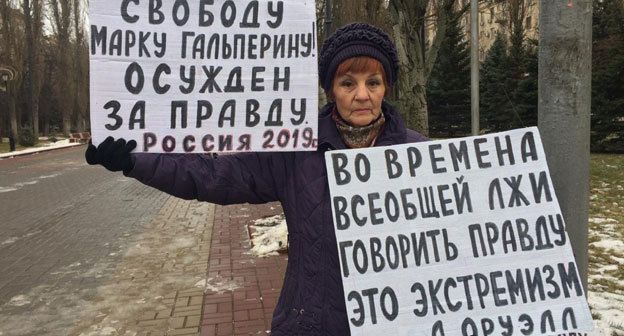 СВОБОДУ
МАРКУ ГАЛЬПЕРИНУ!
ОСУЖДЕН
ЗА ПРАВДУ.
РОССИЯ 2019г
ВО ВРЕМЕНА
ВСЕОБЩЕЙ ЛЖИ
ГОВОРИТЬ ПРАВДУ
ЭТО ЭКСТРЕМИЗМ
ОРУЭЛЛ